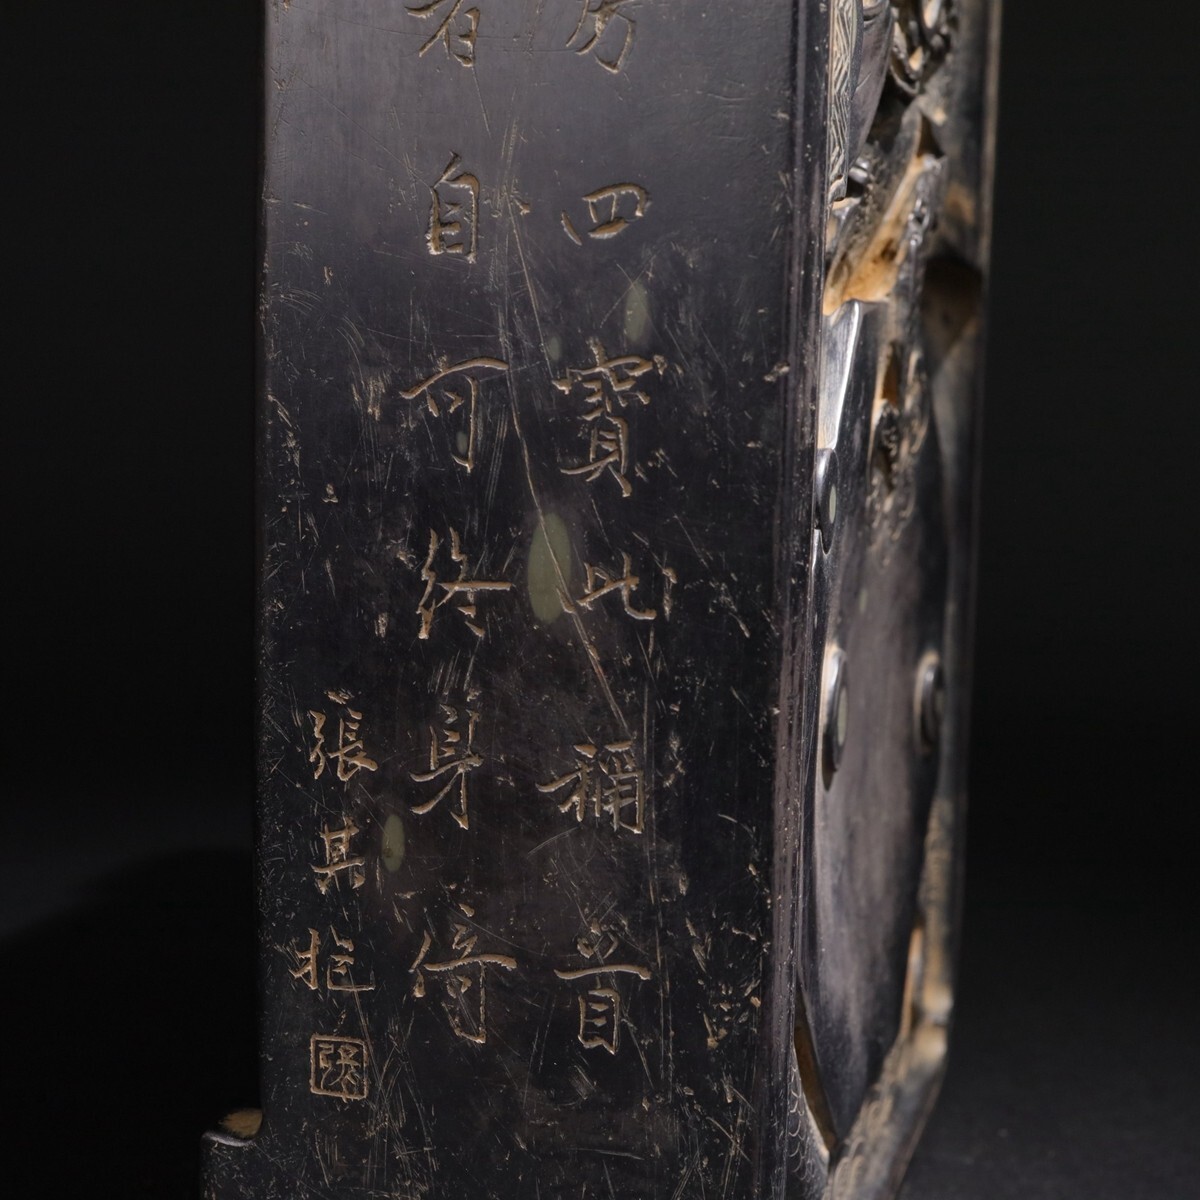 房四寶此稱首
者自可終身倚
張其